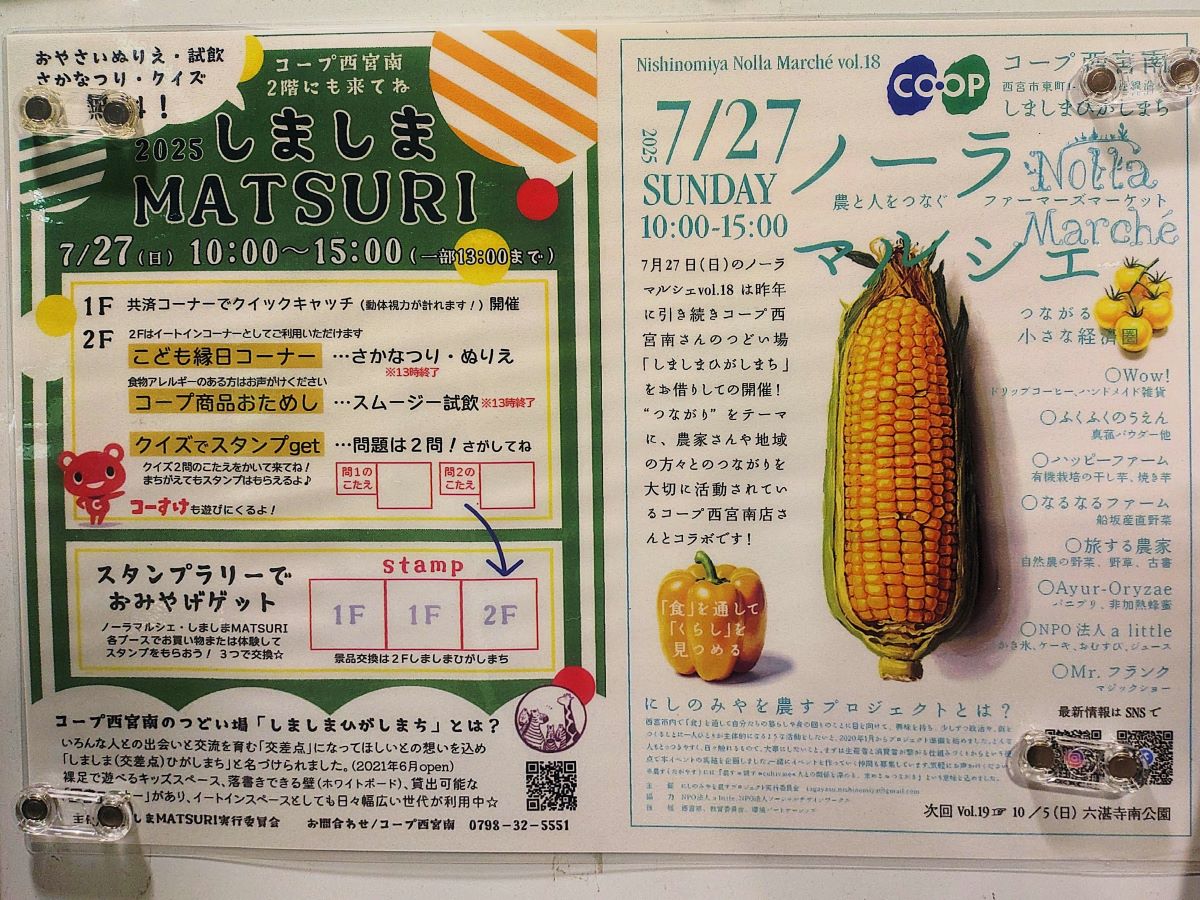 おやさいぬりえ・試飲
さかなつり・クイズ
コープ西宮南
2階にも来てね
2025 しましま
MATSURI
7/27(日) 10:00～15:00(一部13:00まで)
1F 共済コーナーでクイックキャッチ(動体視力が計れます!)開催
2F 2Fはイートインコーナーとしてご利用いただけます
こども縁日コーナー …さかなつり・ぬりえ
※13時終了
食物アレルギーのある方はお声がけください
コープ商品おためし …スムージー試飲 ※13時終了
クイズでスタンプget …問題は2問!さがしてね
クイズ2問のこたえをかいて来てね!
まちがえてもスタンプはもらえるよ♪
問1の
こたえ
問2の
こたえ
コーすけも遊びにくるよ!
スタンプラリーで
おみやげゲット
ノーラマルシェ・しましまMATSURI
各ブースでお買い物または体験して
スタンプをもらおう! 3つで交換☆
stamp
1F 1F 2F
景品交換は2Fしましまひがしまち
コープ西宮南のつどい場「しましまひがしまち」とは?
いろんな人との出会いと交流を育む「交差点」になってほしいとの想いを込め
「しましま(交差点)ひがしまち」と名づけられました。(2021年6月open)
裸足で遊べるキッズスペース、落書きできる壁(ホワイトボード)、貸出可能な
ー」があり、イートインスペースとしても日々幅広い世代が利用中☆
しまMATSURI実行委員会 お問合わせ/コープ西宮南 0798-32-5551
Nishinomiya Nolla Marché vol.18
CO・OP
コープ西宮南
西宮市東町1
しましまひがしまち
2025
7/27
SUNDAY
10:00-15:00
ノーラ
マルシェ
農と人をつなぐ ファーマーズマーケット
Nolla
Marché
7月27日(日)のノーラ
マルシェvol.18 は昨年
に引き続きコープ西
宮南さんのつどい場
「しましまひがしまち」
をお借りしての開催!
“つながり” をテーマ
に、農家さんや地域
の方々とのつながりを
大切に活動されてい
るコープ西宮南店さ
んとコラボです!
つながる
小さな経済圏
○Wow!
ドリップコーヒー、ハンドメイド雑貨
○ふくふくのうえん
真菰パウダー他
○ハッピーファーム
有機栽培の干し芋、焼き芋
○なるなるファーム
船坂産直野菜
○旅する農家
自然農の野菜、野草、古書
○Ayur-Oryzae
パニプリ、非加熱蜂蜜
○NPO法人 a little
かき氷、ケーキ、おむすび、ジュース
○Mr. フランク
マジックショー
「食」を通して
「くらし」を
見つめる
にしのみやを農すプロジェクトとは?
最新情報は SNS で
次回 Vol.19☞ 10／5(日) 六湛寺南公園